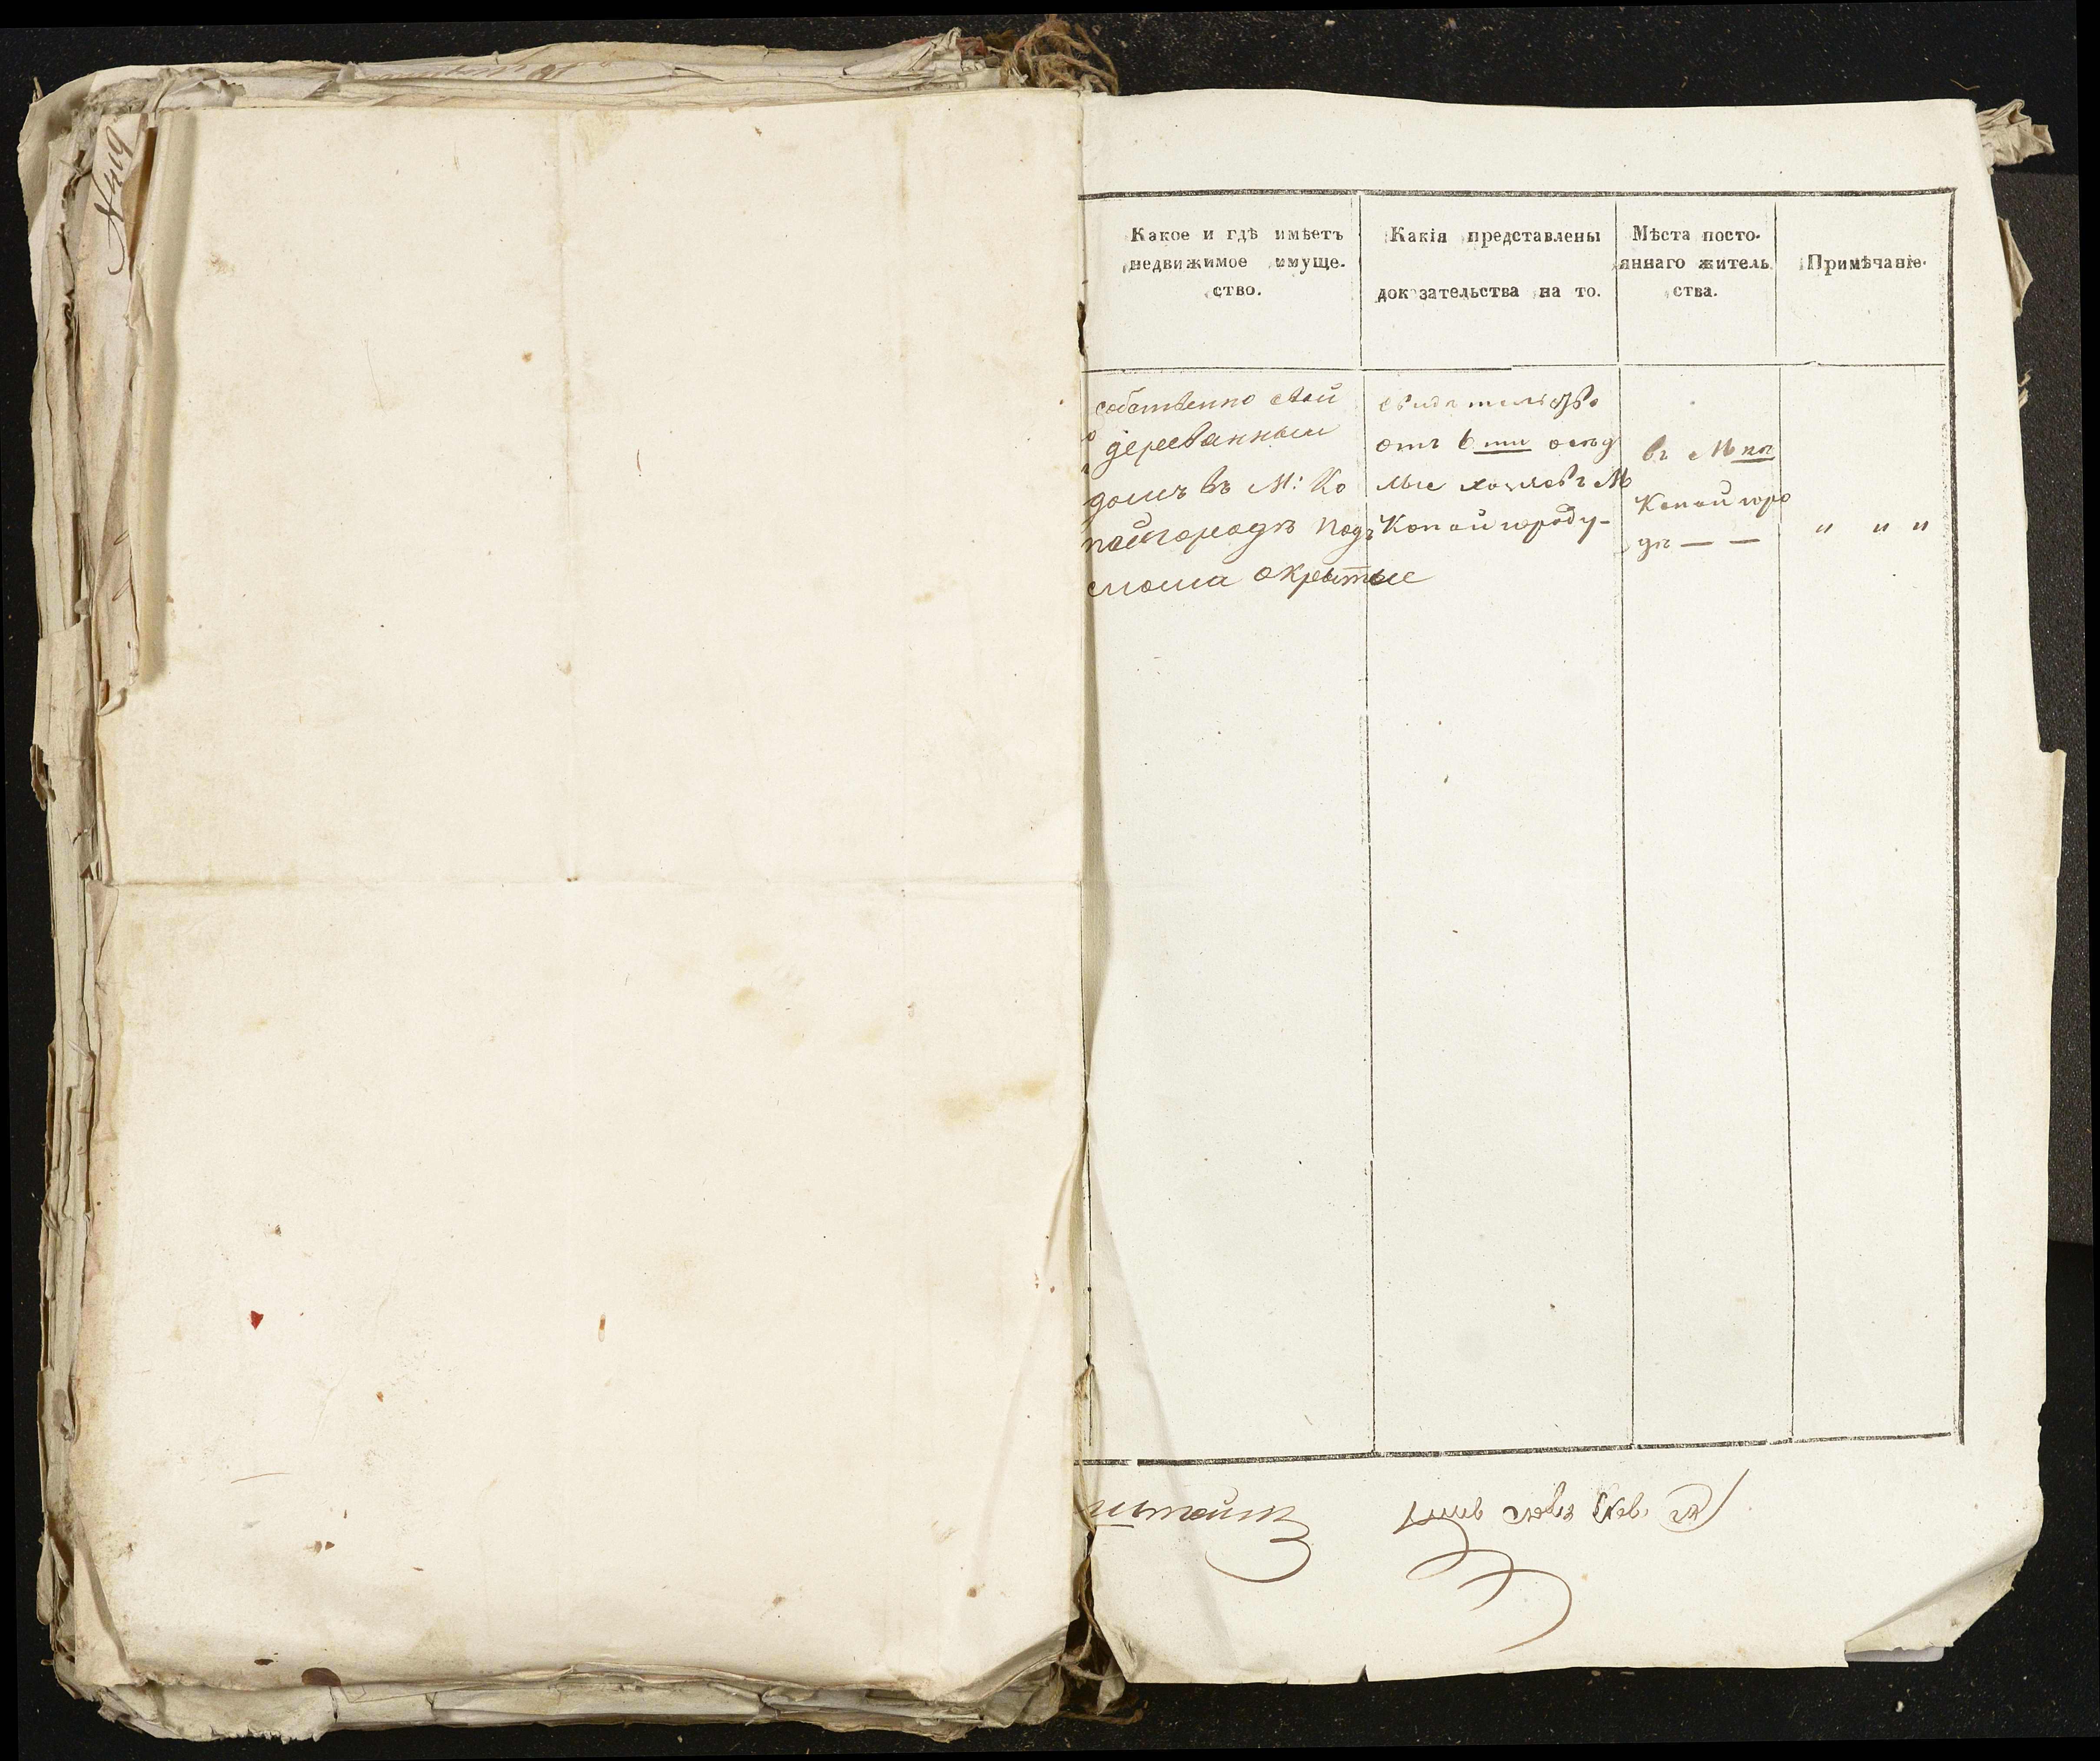 № 419
Какое и гдѣ имѣетъ
недвижимое имуще-
ство.
Какія представлены
доказательства на то.
Мѣста посто-
яннаго житель
ства.
Примѣчаніе.
собственно свой
дереванный
домъ въ М: Ко
пайгородѣ подъ
сиома окрытые
свидетельство
отъ 6 ти осѣд
лые М
Копайгороду-
въ М пѣ
Копайгоро
дѣ — —
" " "